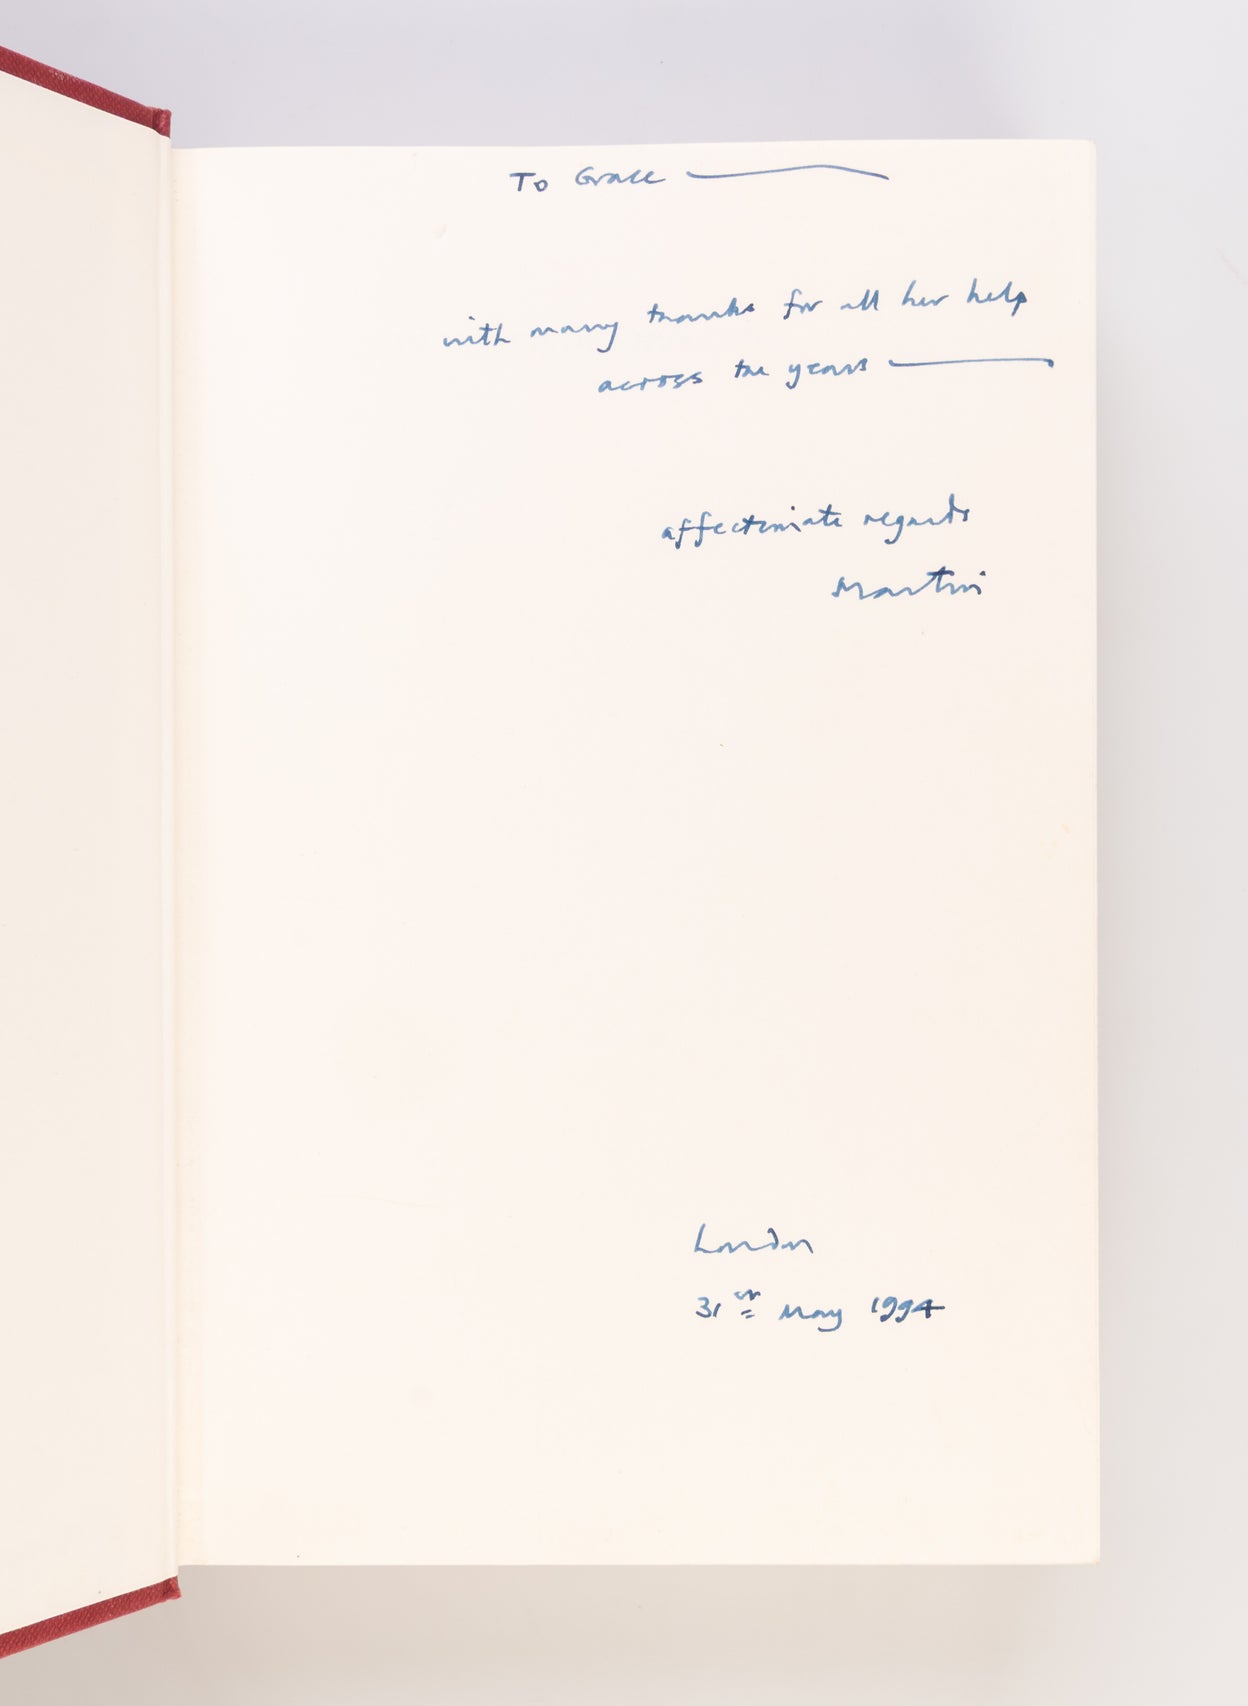 To Grace —
with many thanks for all her help
across the years —
affectionate regards
Martin
London
31st May 1994